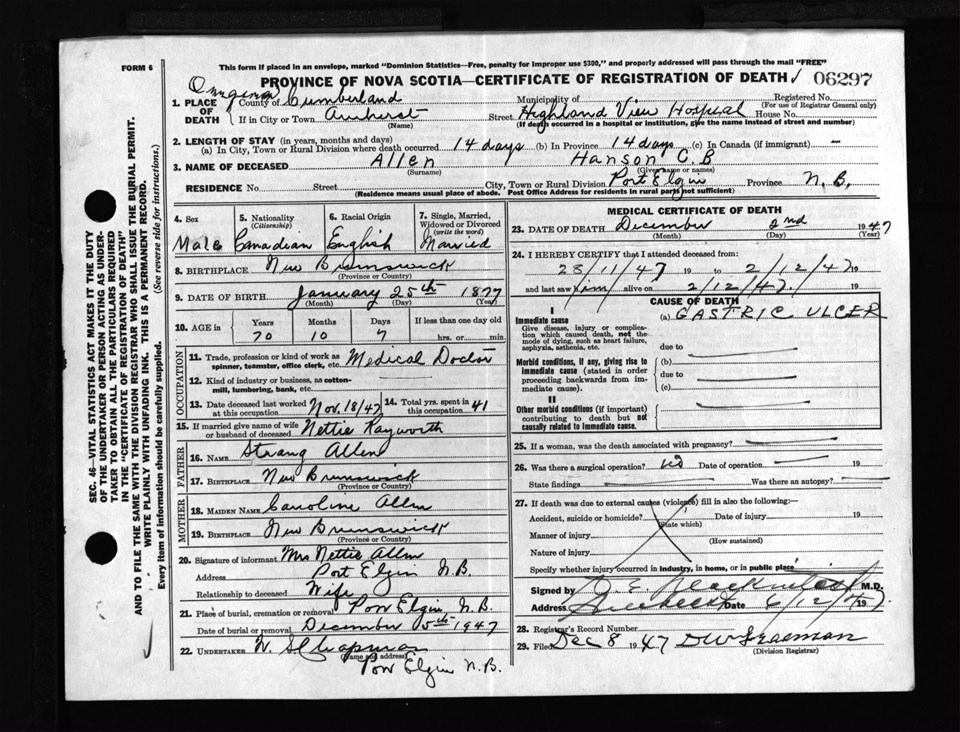 FORM 6
This form if placed in an envelope, marked "Dominion Statistics—Free, penalty for improper use $300," and properly addressed will pass through the mail "FREE"
PROVINCE OF NOVA SCOTIA—CERTIFICATE OF REGISTRATION OF DEATH 06297
1. PLACE OF DEATH County of Cumberland Municipality of Registered No.
(For use of Registrar General only)
If in City or Town Amherst Street Highland View Hospital House No.
(Name) (If death occurred in a hospital or institution, give the name instead of street and number)
2. LENGTH OF STAY (in years, months and days)
(a) In City, Town or Rural Division where death occurred 14 days (b) In Province 14 days (c) In Canada (if immigrant) —
3. NAME OF DECEASED Allen Hanson C.B
(Surname) (Given name or names)
RESIDENCE No. Street City, Town or Rural Division Port Elgin Province N.B.
(Residence means usual place of abode. Post Office Address for residents in rural parts not sufficient)
4. Sex Male
5. Nationality (Citizenship) Canadian
6. Racial Origin English
7. Single, Married, Widowed or Divorced (write the word) Married
8. BIRTHPLACE New Brunswick
(Province or County)
9. DATE OF BIRTH January 25th 1877
(Month) (Day) (Year)
10. AGE in Years Months Days If less than one day old
70 10 7 hrs. or min.
OCCUPATION
11. Trade, profession or kind of work as spinner, teamster, office clerk, etc. Medical Doctor
12. Kind of industry or business, as cotton-mill, lumbering, bank, etc.
13. Date deceased last worked at this occupation Nov. 18/47 14. Total yrs. spent in this occupation 41
15. If married give name of wife or husband of deceased Nettie Rayworth
FATHER
16. NAME Strang Allen
17. BIRTHPLACE New Brunswick
(Province or Country)
MOTHER
18. MAIDEN NAME Caroline Allen
19. BIRTHPLACE New Brunswick
(Province or Country)
20. Signature of informant Mrs Nettie Allen
Address Port Elgin N.B.
Relationship to deceased Wife
21. Place of burial, cremation or removal Port Elgin N.B.
Date of burial or removal December 5th 1947
22. UNDERTAKER Chapman
(Name and address)
Port Elgin N.B.
MEDICAL CERTIFICATE OF DEATH
23. DATE OF DEATH December 2nd 1947
(Month) (Day) (Year)
24. I HEREBY CERTIFY that I attended deceased from:
28/11/47 19 to 2/12/47 19
and last saw him alive on 2/12/47. 19
CAUSE OF DEATH
I
Immediate cause (a) GASTRIC ULCER
Give disease, injury or complication which caused death, not the mode of dying, such as heart failure, asphyxia, asthenia, etc. due to
Morbid conditions, if any, giving rise to immediate cause (stated in order proceeding backwards from immediate cause). (b) due to (c)
II
Other morbid conditions (if important) contributing to death but not causally related to immediate cause.
25. If a woman, was the death associated with pregnancy?
26. Was there a surgical operation? no Date of operation — 19
State findings Was there an autopsy?
27. If death was due to external causes (violence) fill in also the following:—
Accident, suicide or homicide? Date of injury 19
(State which)
Manner of injury
(How sustained)
Nature of injury
Specify whether injury occurred in industry, in home, or in public place
Signed by M.D.
Address Date 6/12/47
28. Registrar's Record Number
29. Filed Dec 8 1947
(Division Registrar)
SEC. 46—VITAL STATISTICS ACT MAKES IT THE DUTY
OF THE UNDERTAKER OR PERSON ACTING AS UNDER-
TAKER TO OBTAIN ALL THE PARTICULARS REQUIRED
IN THE "CERTIFICATE OF REGISTRATION OF DEATH"
AND TO FILE THE SAME WITH THE DIVISION REGISTRAR WHO SHALL ISSUE THE BURIAL PERMIT.
WRITE PLAINLY WITH UNFADING INK. THIS IS A PERMANENT RECORD.
Every item of information should be carefully supplied. (See reverse side for instructions.)